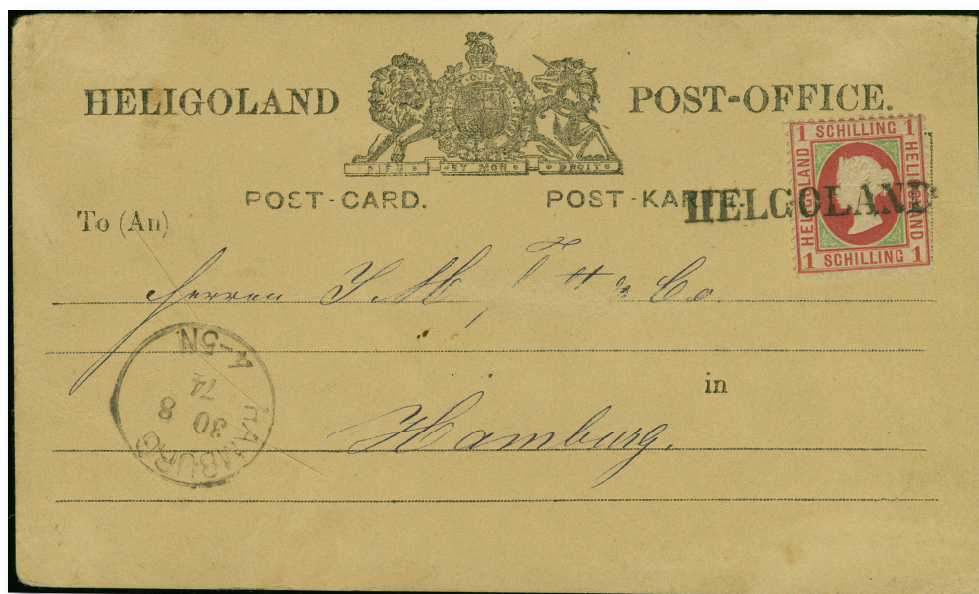 HELIGOLAND POST-OFFICE.
DIEU ET MON DROIT
POST-CARD. POST-KARTE.
1 SCHILLING 1
HELIGOLAND
HELIGOLAND
1 SCHILLING 1
HELGOLAND
To (An)
Herren J. M. & Co.
in
Hamburg.
HAMBURG
30 8
74
4-5N.